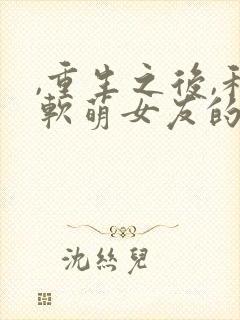 ,重生之後,和
軟萌女友的
沈絲兒